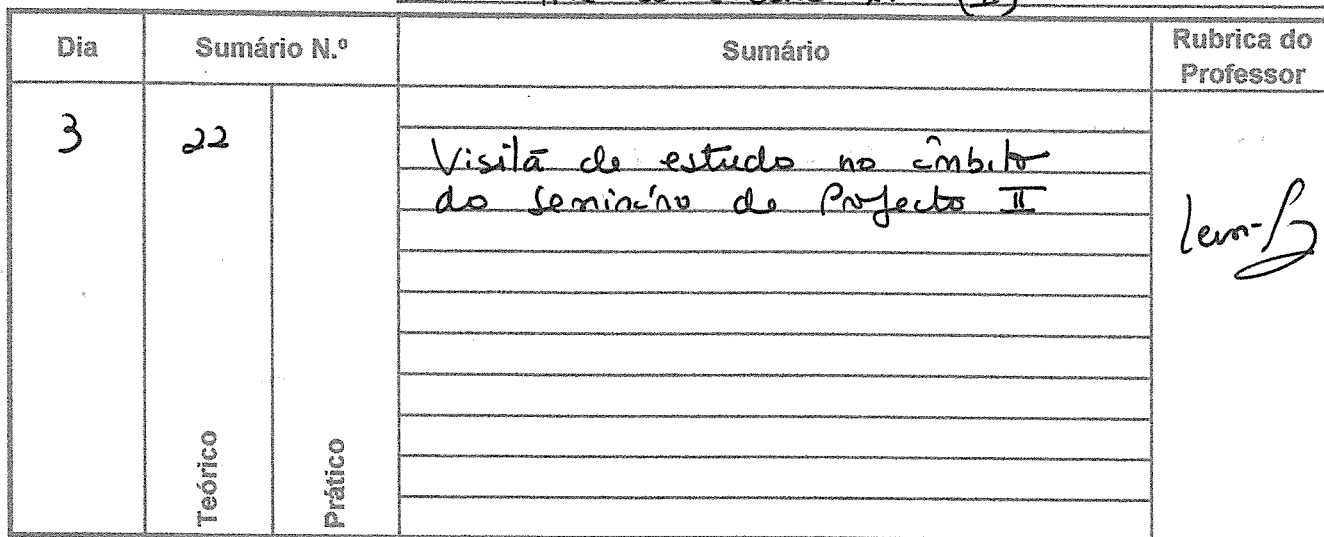 (II)
Dia Sumário N.º Sumário Rubrica do Professor
3 22 Visita de estudo no âmbito
do Seminário de Projecto II
Teórico Prático